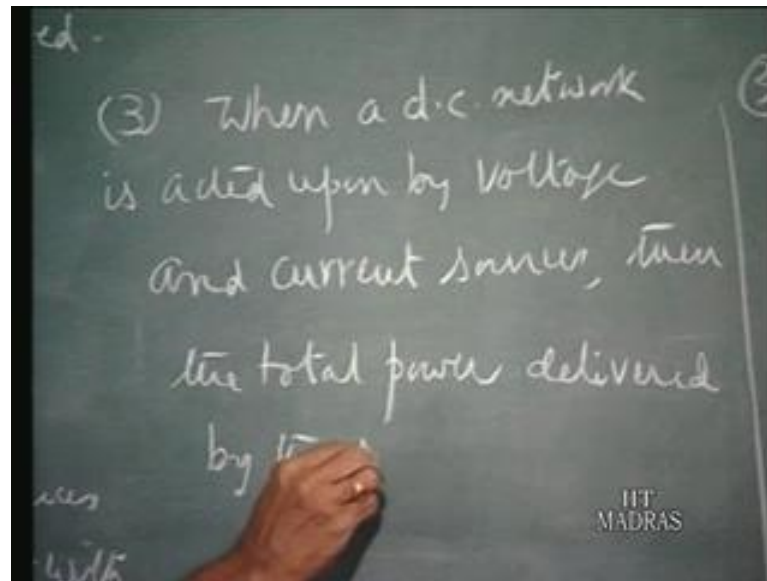 ed.
(3) When a d.c. network
is acted upon by voltage
and current sources, then
the total power delivered
by
with
IIT
MADRAS